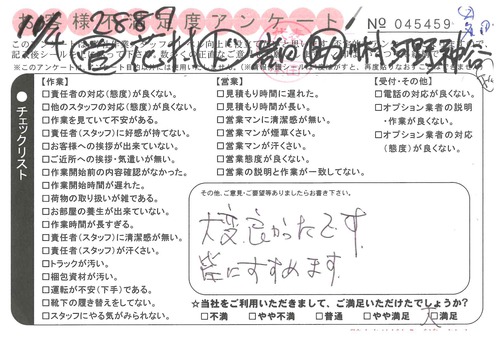 お客様不満足度アンケート
No 045459
10/4
2889
【作業】
□責任者の対応(態度)が良くない。
□他のスタッフの対応(態度)が良くない。
□作業を見ていて不安がある。
□責任者(スタッフ)に好感が持てない。
□お客様への挨拶が出来ていない。
□ご近所への挨拶・気遣いが無い。
□作業開始前の内容確認がなかった。
□作業開始時間が遅れた。
□荷物の取り扱いが雑である。
□お部屋の養生が出来ていない。
□作業時間が長すぎる。
□責任者(スタッフ)に清潔感が無い。
□責任者(スタッフ)が汗くさい。
□トラックが汚い。
□梱包資材が汚い。
□運転が不安(下手)である。
□靴下の履き替えをしてない。
□スタッフにやる気がみられない。
【営業】
□見積もり時間に遅れた。
□見積もり時間が長い。
□営業マンに清潔感が無い。
□営業マンが煙草くさい。
□営業マンが汗くさい。
□営業態度が良くない。
□営業の説明と作業が一致してない。
【受付・その他】
□電話の対応が良くない。
□オプション業者の説明
・作業が良くない。
□オプション業者の対応
(態度)が良くない。
チェックリスト
その他、ご意見・ご要望等ありましたらお書き下さい。
大変良かったです。
皆にすすめます。
☆当社をご利用いただきまして、ご満足いただけたでしょうか?
□不満 □やや不満 □普通 □やや満足 □満足
大